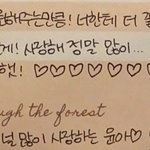 해주는만큼! 너한테 더
게! 사랑해 정말 많이...
했! ♡♡♡♡♡♡♡♡
ugh the forest
널 많이 사랑하는 윤아♡